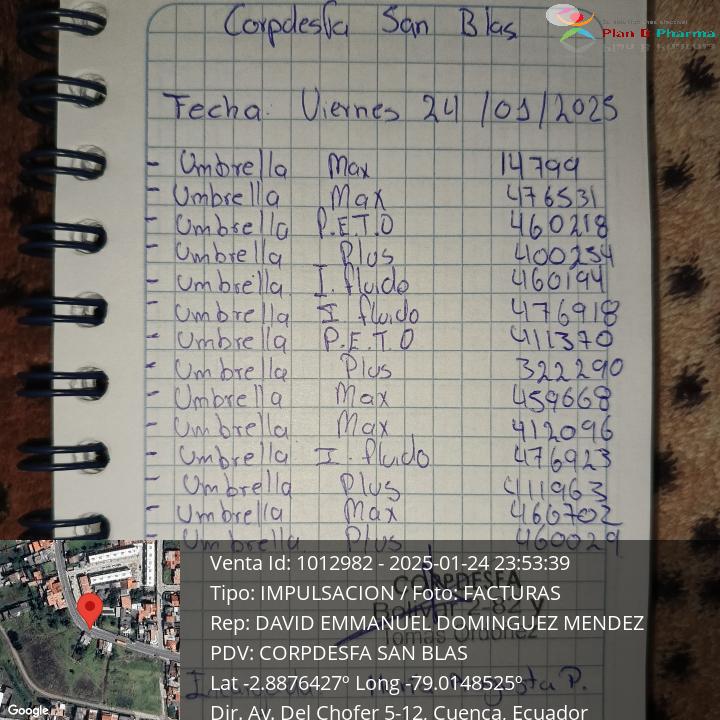 Corpdesfa San Blas
Plan B Pharma
Fecha: Viernes 24/01/2025
- Umbrella Max 14799
- Umbrella Max 476531
- Umbrella P.E.T.O 460218
- Umbrella Plus 400254
- Umbrella I. fluido 460194
- Umbrella I fluido 476918
- Umbrella P.E.T.O 411370
- Umbrella Plus 322290
- Umbrella Max 459668
- Umbrella Max 412096
- Umbrella I. fluido 476923
- Umbrella Plus 411963
- Umbrella Max 460702
- Umbrella Plus 460029
Venta Id: 1012982 - 2025-01-24 23:53:39
CORPDESFA
Tipo: IMPULSACION / Foto: FACTURAS
Bolívar 2-82 y
Rep: DAVID EMMANUEL DOMINGUEZ MENDEZ
Tomás Ordóñez
PDV: CORPDESFA SAN BLAS
Lat -2.8876427° Long -79.0148525°
P.
Dir. Av. Del Chofer 5-12, Cuenca, Ecuador
Google